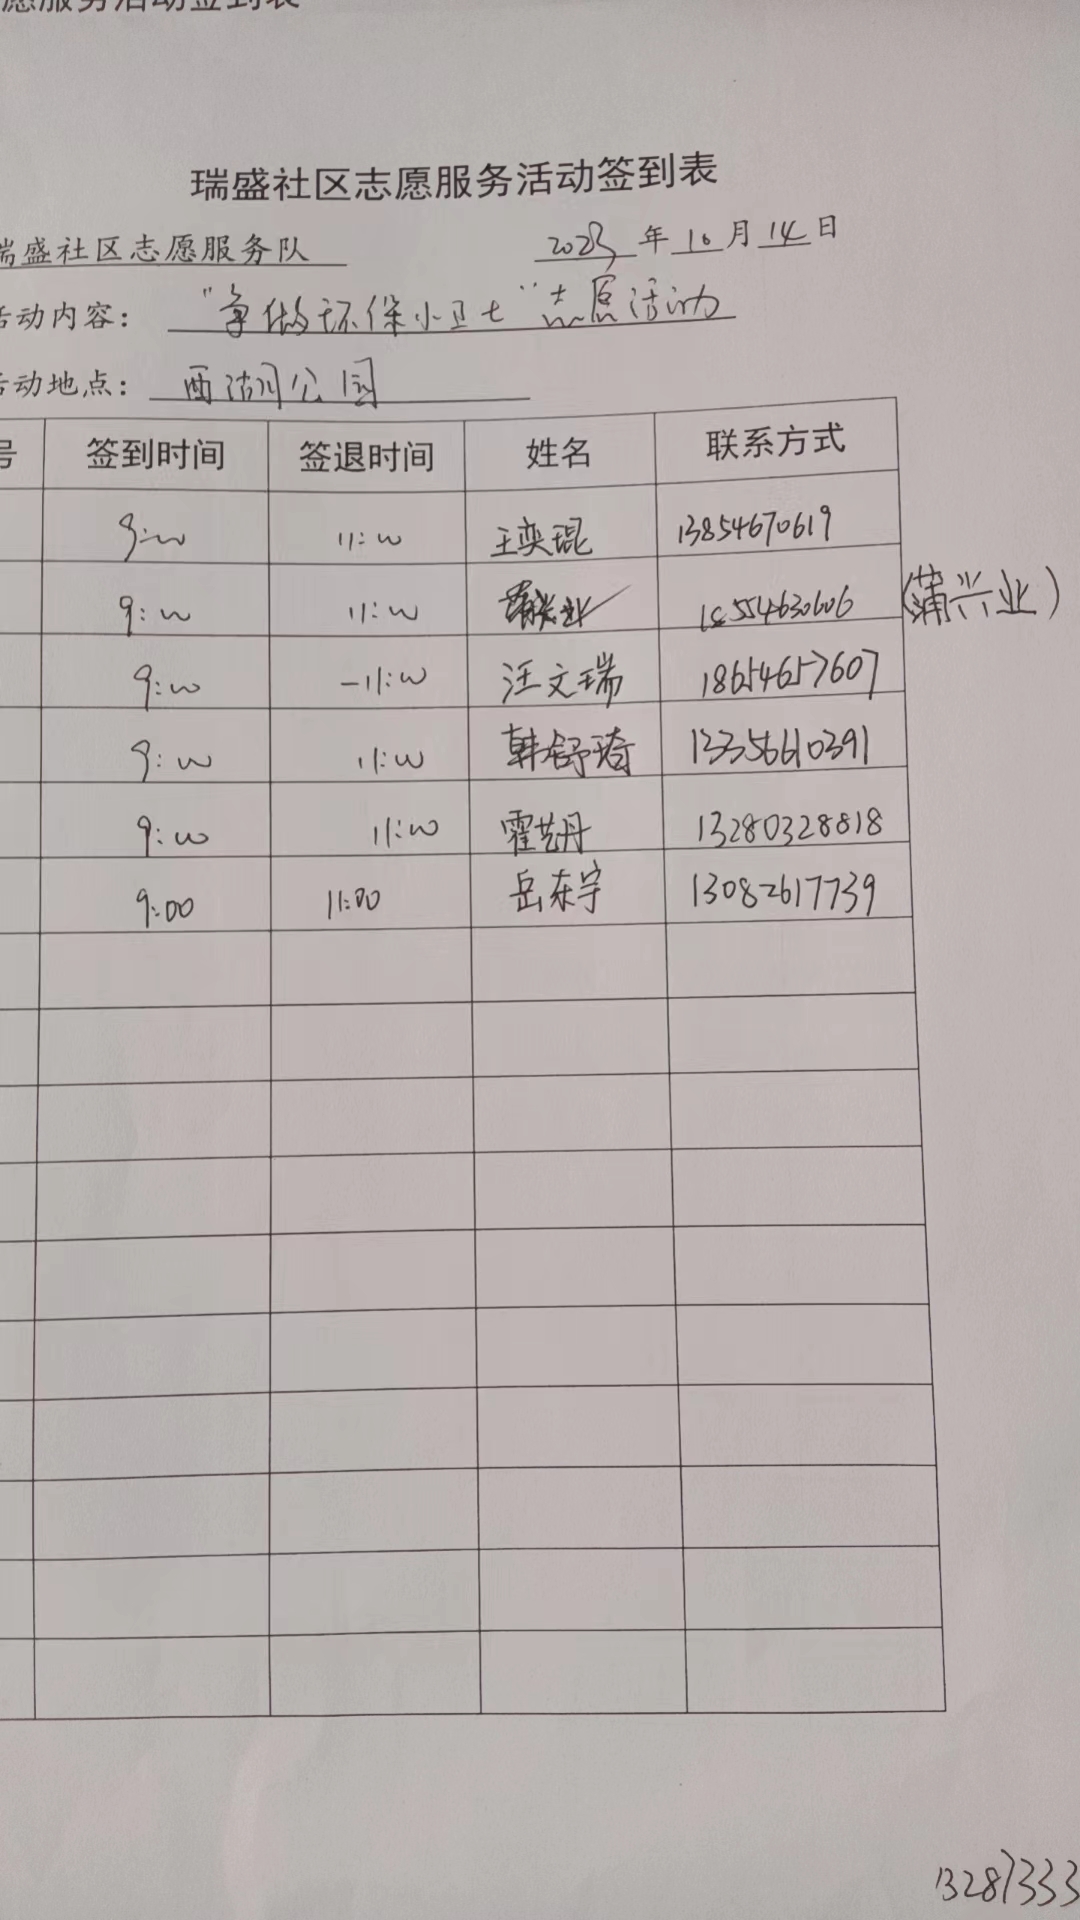 愿服务活动签到表
瑞盛社区志愿服务活动签到表
瑞盛社区志愿服务队 2023年10月14日
活动内容： "争做环保小卫士"志愿活动
活动地点： 西湖公园
号 签到时间 签退时间 姓名 联系方式
9:00 11:00 王奕琨 13854670619
9:00 11:00 蒲兴业 15554630606 (蒲兴业)
9:00 -11:00 汪文瑞 18654657607
9:00 11:00 韩舒琦 13356610391
9:00 11:00 霍艺丹 13280328818
9:00 11:00 岳东宇 13082617739
13287333